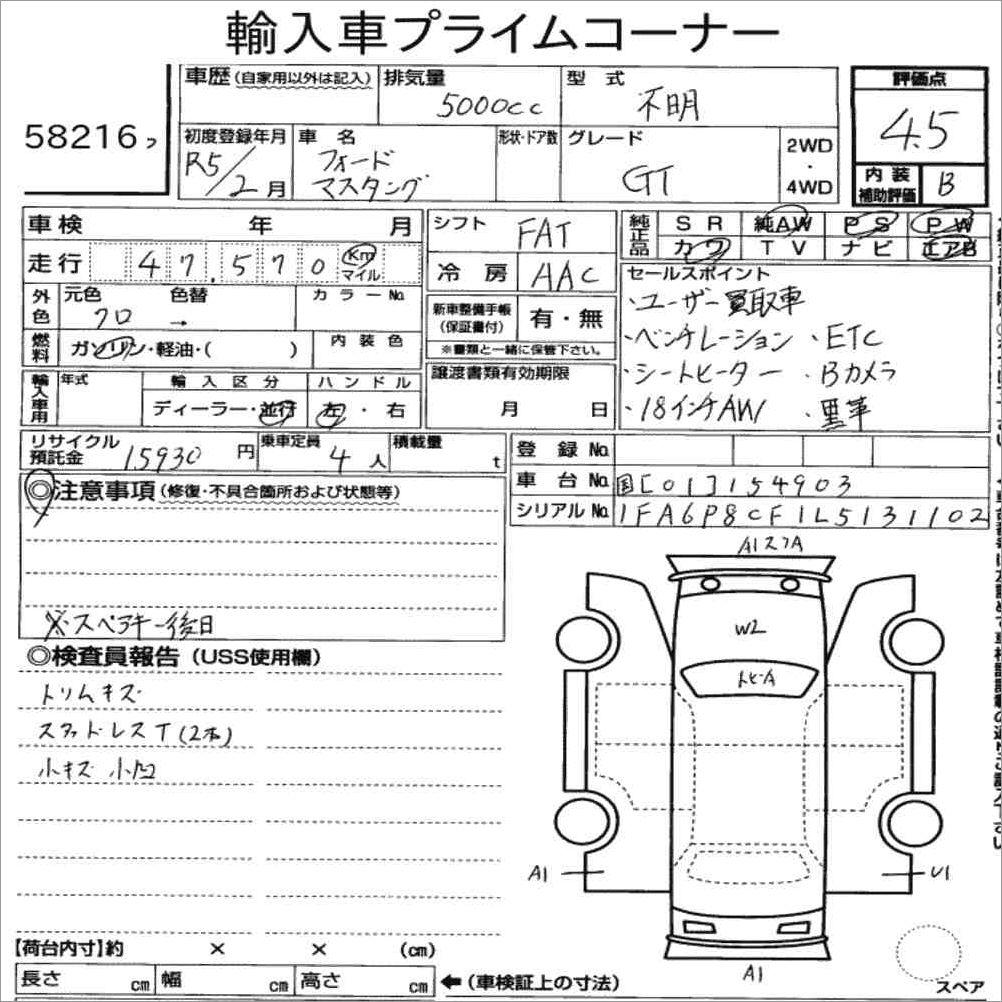 輸入車プライムコーナー
58216 フ
車歴 (自家用以外は記入) 排気量 5000cc 型式 不明
評価点 4.5
初度登録年月 R5/2月 車名 フォード マスタング 形状・ドア数 グレード GT 2WD・4WD
内装補助評価 B
車検 年 月
シフト FAT
純正品 SR 純AW PS PW
カワ TV ナビ エアB
走行 47,570 Km マイル
冷房 AAC
セールスポイント
・ユーザー買取車
・ベンチレーション ・ETC
・シートヒーター ・Bカメラ
・18インチAW ・黒革
外色 元色 クロ 色替 → カラーNo.
新車整備手帳(保証書付) 有・無
※書類と一緒に保管下さい。
燃料 ガソリン・軽油・( ) 内装色
輸入車用 年式 輸入区分 ハンドル
ディーラー・並行 左・右
譲渡書類有効期限
月 日
リサイクル預託金 15930円 乗車定員 4人 積載量 t
登録No.
車台No. 国[01]154903
シリアルNo. 1FA6P8CF1L5131102
◎注意事項 (修復・不具合箇所および状態等)
※スペアキー後日
◎検査員報告 (USS使用欄)
トリムキズ
スタッドレスT(2本)
小キズ 小凹
A1スフA
W2
トビ-A
A1
U1
A1
スペア
【荷台内寸】約 × × (cm)
長さ cm 幅 cm 高さ cm ←(車検証上の寸法)